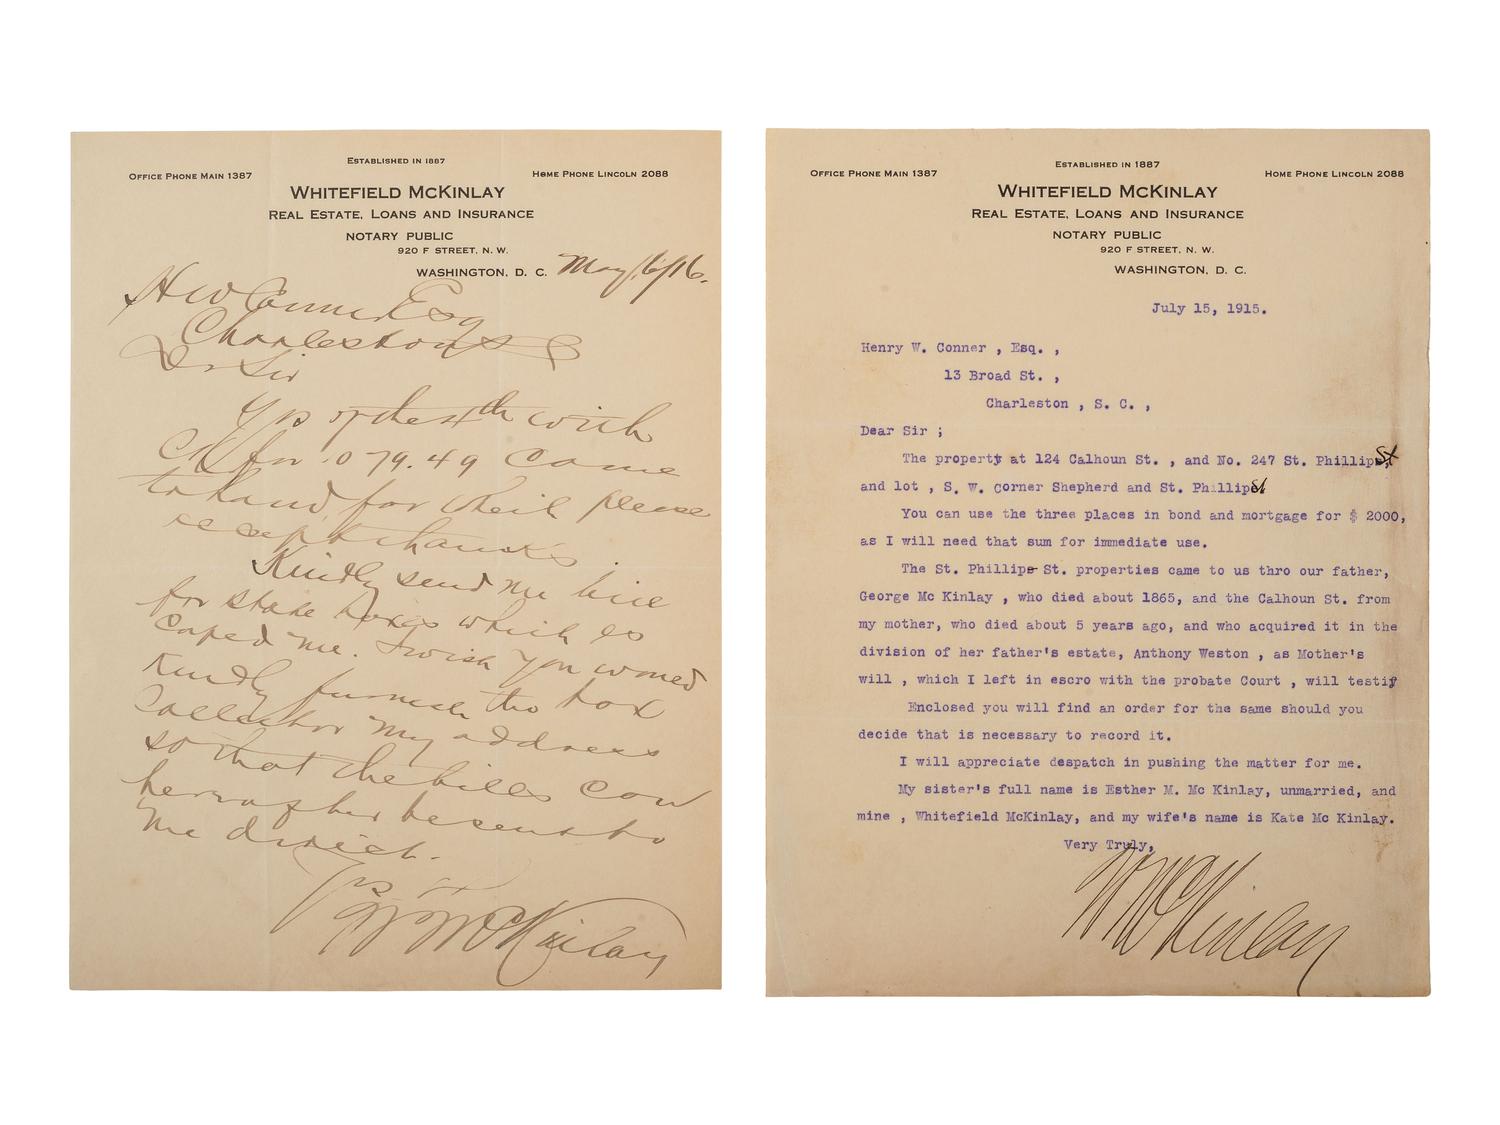 ESTABLISHED IN 1887
OFFICE PHONE MAIN 1387
HOME PHONE LINCOLN 2088
WHITEFIELD MCKINLAY
REAL ESTATE, LOANS AND INSURANCE
NOTARY PUBLIC
920 F STREET, N. W.
WASHINGTON, D. C. May /16.
H W Conner Esq
Charleston S C
Dr Sir
Yrs of the th with
Ck for 79.49 came
to hand for which please
accept thanks
Kindly send me bill
for state taxes which es
caped me. I wish you would
kindly furnish the tax
collector my address
so that the bills can
hereafter be sent to
me direct.
Yrs &
W McKinlay
ESTABLISHED IN 1887
OFFICE PHONE MAIN 1387
HOME PHONE LINCOLN 2088
WHITEFIELD MCKINLAY
REAL ESTATE, LOANS AND INSURANCE
NOTARY PUBLIC
920 F STREET, N. W.
WASHINGTON, D. C.
July 15, 1915.
Henry W. Conner , Esq. ,
13 Broad St. ,
Charleston , S. C. ,
Dear Sir ;
The property at 124 Calhoun St. , and No. 247 St. Phillip St
and lot , S. W. corner Shepherd and St. Phillip St
You can use the three places in bond and mortgage for $ 2000,
as I will need that sum for immediate use.
The St. Phillip St. properties came to us thro our father,
George Mc Kinlay , who died about 1865, and the Calhoun St. from
my mother, who died about 5 years ago, and who acquired it in the
division of her father's estate, Anthony Weston , as Mother's
will , which I left in escro with the probate Court , will testify
Enclosed you will find an order for the same should you
decide that is necessary to record it.
I will appreciate despatch in pushing the matter for me.
My sister's full name is Esther M. Mc Kinlay, unmarried, and
mine , Whitefield McKinlay, and my wife's name is Kate Mc Kinlay.
Very Truly,
W McKinlay